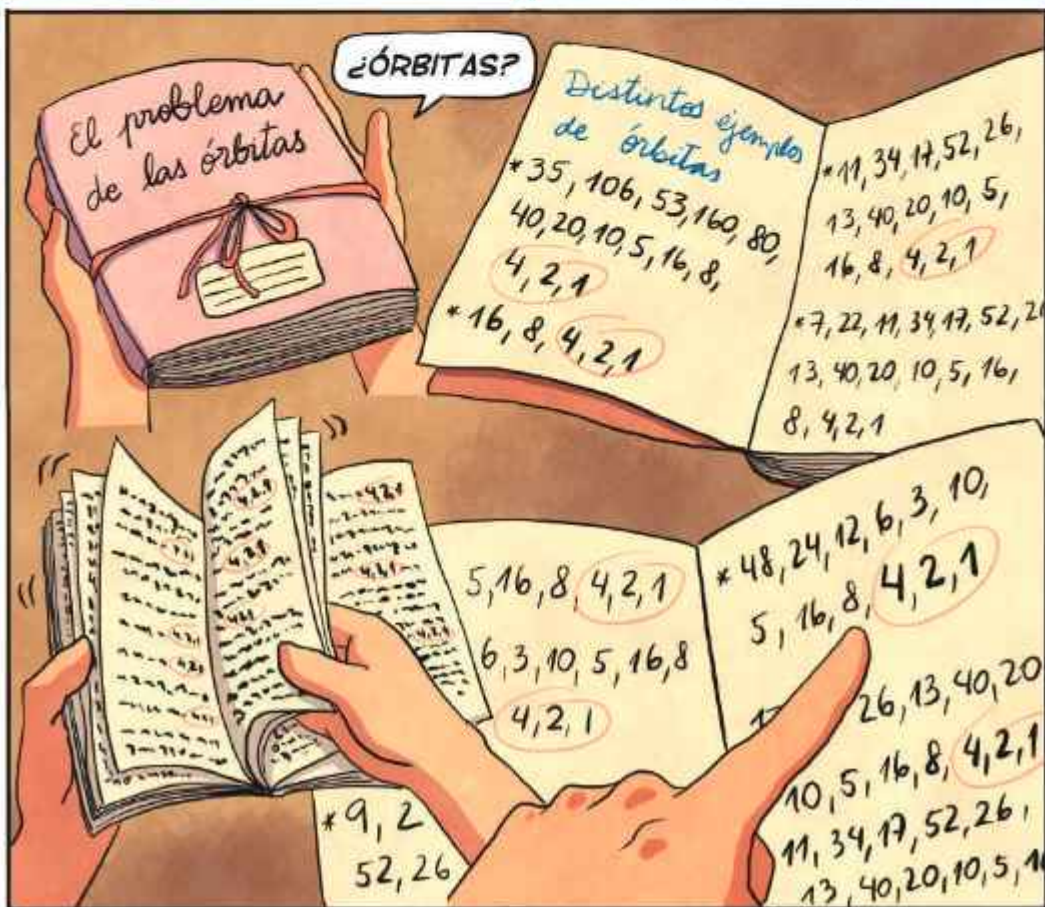 El problema
de las órbitas
¿ÓRBITAS?
Distintos ejemplos
de órbitas
*35, 106, 53, 160, 80,
40, 20, 10, 5, 16, 8,
4, 2, 1
*16, 8, 4, 2, 1
*11, 34, 17, 52, 26,
13, 40, 20, 10, 5,
16, 8, 4, 2, 1
*7, 22, 11, 34, 17, 52, 2
13, 40, 20, 10, 5, 16,
8, 4, 2, 1
5, 16, 8, 4, 2, 1
6, 3, 10, 5, 16, 8
4, 2, 1
*9, 2
52, 26
*48, 24, 12, 6, 3, 10,
5, 16, 8, 4, 2, 1
26, 13, 40, 20
10, 5, 16, 8, 4, 2, 1
11, 34, 17, 52, 26,
13, 40, 20, 10, 5, 1